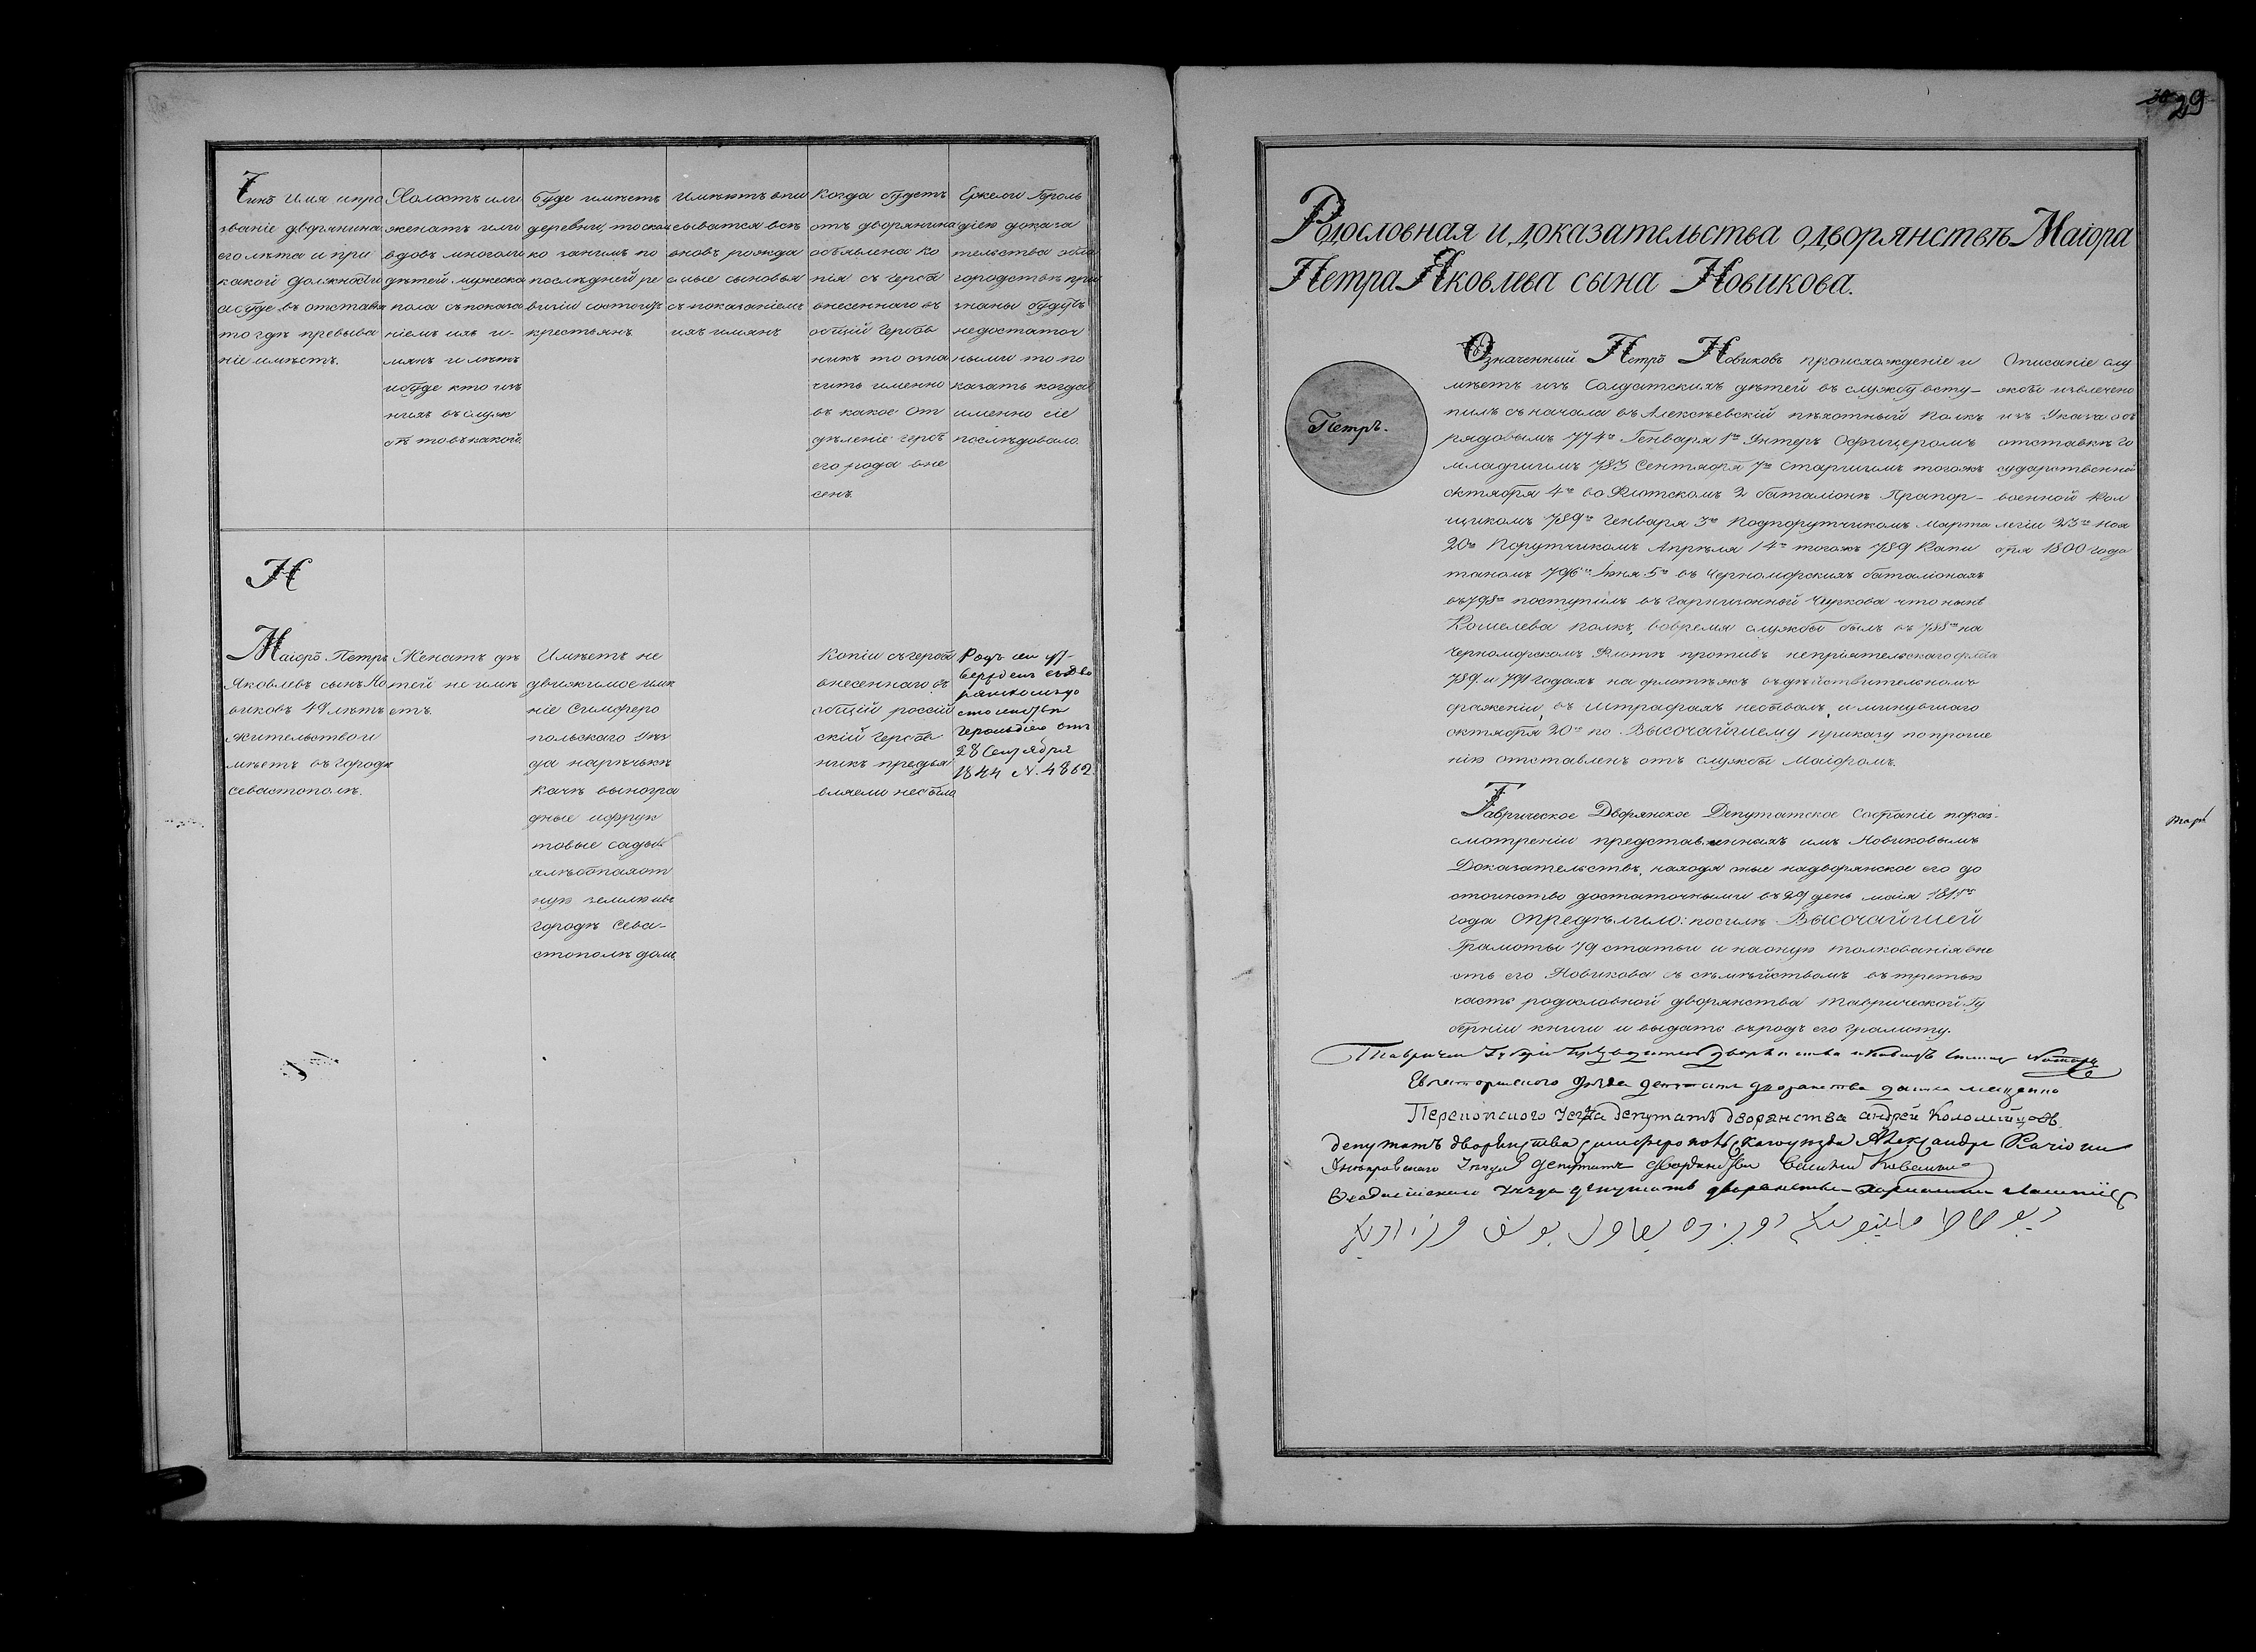 Чинъ Имя ипро
званіе дворянина
его лѣта и при
какой должности
абуде въ отставкѣ
то гдѣ превыва
ніе имѣетъ.
Холостъ или
женатъ или
вдовъ многоли
дѣтей мужеска
пола съ показа
ніемъ ихъ и-
мянъ и лѣтъ
ибуде кто изъ
нихъ въ служ
бѣ то въ какой.
буде имѣетъ
деревни, то сколь
ко занимъ по
послѣдней ре
визіи состоитъ
крестьянъ.
Имѣютъ впи
сыватся всѣ
вновь рожда
емые сыновья
съ показаніемъ
ихъ имянъ
Когда будетъ
отъ дворянина
объявлена ко
пія съ герба
внесеннаго въ
общій Гербо
никъ то озна
чить именно
въ какое От
дѣленіе гербъ
его рода вне
сенъ.
Ежели Героль
дією доказа
тельства обла
городствѣ при
знаны будутъ
недостаточ
ными то по
казать когда
именно сіе
послѣдовало.
Н
Маіоръ Петръ
Яковлевъ сынъ Но
виковъ 49 лѣтъ
жительство и
мѣетъ въ городѣ
Севастополѣ.
Женатъ дѣ
тей не имѣ
етъ.
Имѣетъ не
движимое имѣ
ніе Симферо
польскаго Уѣз
да нарѣчькѣ
Качѣ виногра
дные ифрук
товые сады
ихлѣбопахот
ную землю ивъ
городѣ Сева-
стополѣ домъ.
Копіи съ герба
внесеннаго въ
общій россій
скій Гербо
никъ предъя
вляемо небыло
Родъ сей ут-
вержденъ въ дво
рянскомъ до
стоинствѣ
Герольдіею отъ
28 Сентября
1844 N. 4862.
29
Родословная и доказательства одворянствѣ Маіора
Петра Яковлева сына Новикова.
Петръ.
Означенный Петръ Новиковъ происхожденіе и
мѣетъ изъ Солдатскихъ дѣтей въ службу всту-
пилъ сначала въ Алексѣевскій пѣхотный полкъ
рядовымъ 774го Генваря 1го Унтеръ Офицеромъ
младшимъ 783 Сентября 7го старшимъ тогожъ
октября 4го во Флотскомъ 2 баталіонѣ Прапор-
щикомъ 789го Генваря 3го Подпорутчикомъ марта
20го Порутчикомъ Апрѣля 14го тогожъ 789 Капи
таномъ 796го Іюня 5го въ Черноморскихъ баталіонахъ
въ 798го поступилъ въ гарнизонный Чиркова что нынѣ
Кошелева полкъ, вовремя службы былъ въ 788мъ на
Черноморскомъ Флотѣ противъ непріятельскаго флота
789. и 791 годахъ на флотѣжъ въ дѣйствительномъ
сраженіи, въ штрафахъ небывалъ, и минувшаго
октября 20го по Высочайшему приказу попроше
нію отставленъ отъ службы Маіоромъ.
Описаніе слу
жбы извлечено
изъ Указа объ
отставкѣ Го
сударственной
военной Кол
легіи 23го ноя
бря 1800 года
Таврическое Дворянское Депутатское Собраніе пораз-
смотреніи представленныхъ имъ Новиковымъ
Доказательствъ, находя оные надворянское его до
стоинство достаточными въ 29 день маія
года опредѣлило: посилѣ Высочайшей
Грамоты 79 статьи и наоную толкованія вне
сть его Новикова съ сѣмѣйствомъ въ третью
часть родословной дворянства Таврической Гу
берніи книги и выдать въродъ его грамоту.
Евпаторійского уѣзда депутатъ дворянства
Перекопского уезда депутатъ дворянства андрей Коломійцовъ.
депутатъ дворянства симферопольскаго уезда Александръ
Днѣпровскаго Уѣзда депутатъ дворянства
уѣзда депутатъ дворянства